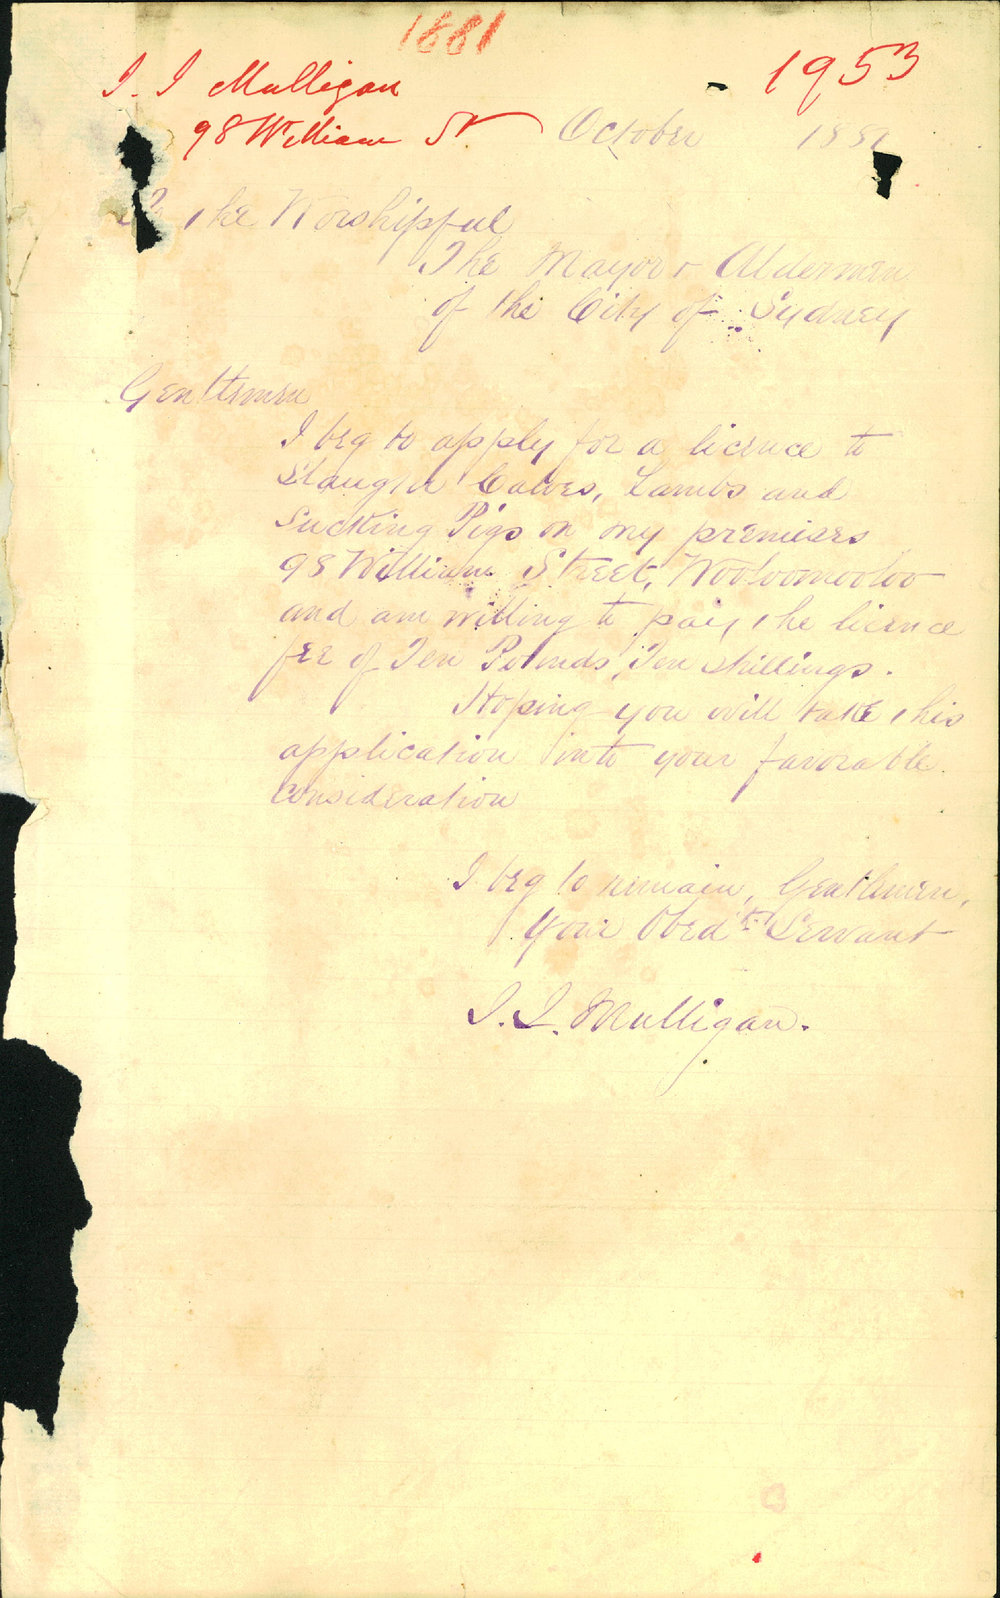 1881
1953
J. J Mulligan
98 William St
October 1881
To the Worshipful
The Mayor & Aldermen
of the City of Sydney
Gentlemen
I beg to apply for a licence to
Slaughter Calves, Lambs and
Sucking Pigs on my premises
98 William Street, Wooloomooloo
and am willing to pay the licence
fee of Ten Pounds, Ten shillings.
Hoping you will take this
application into your favorable
consideration
I beg to remain, Gentlemen,
Your Obedt Servant
J. J. Mulligan.